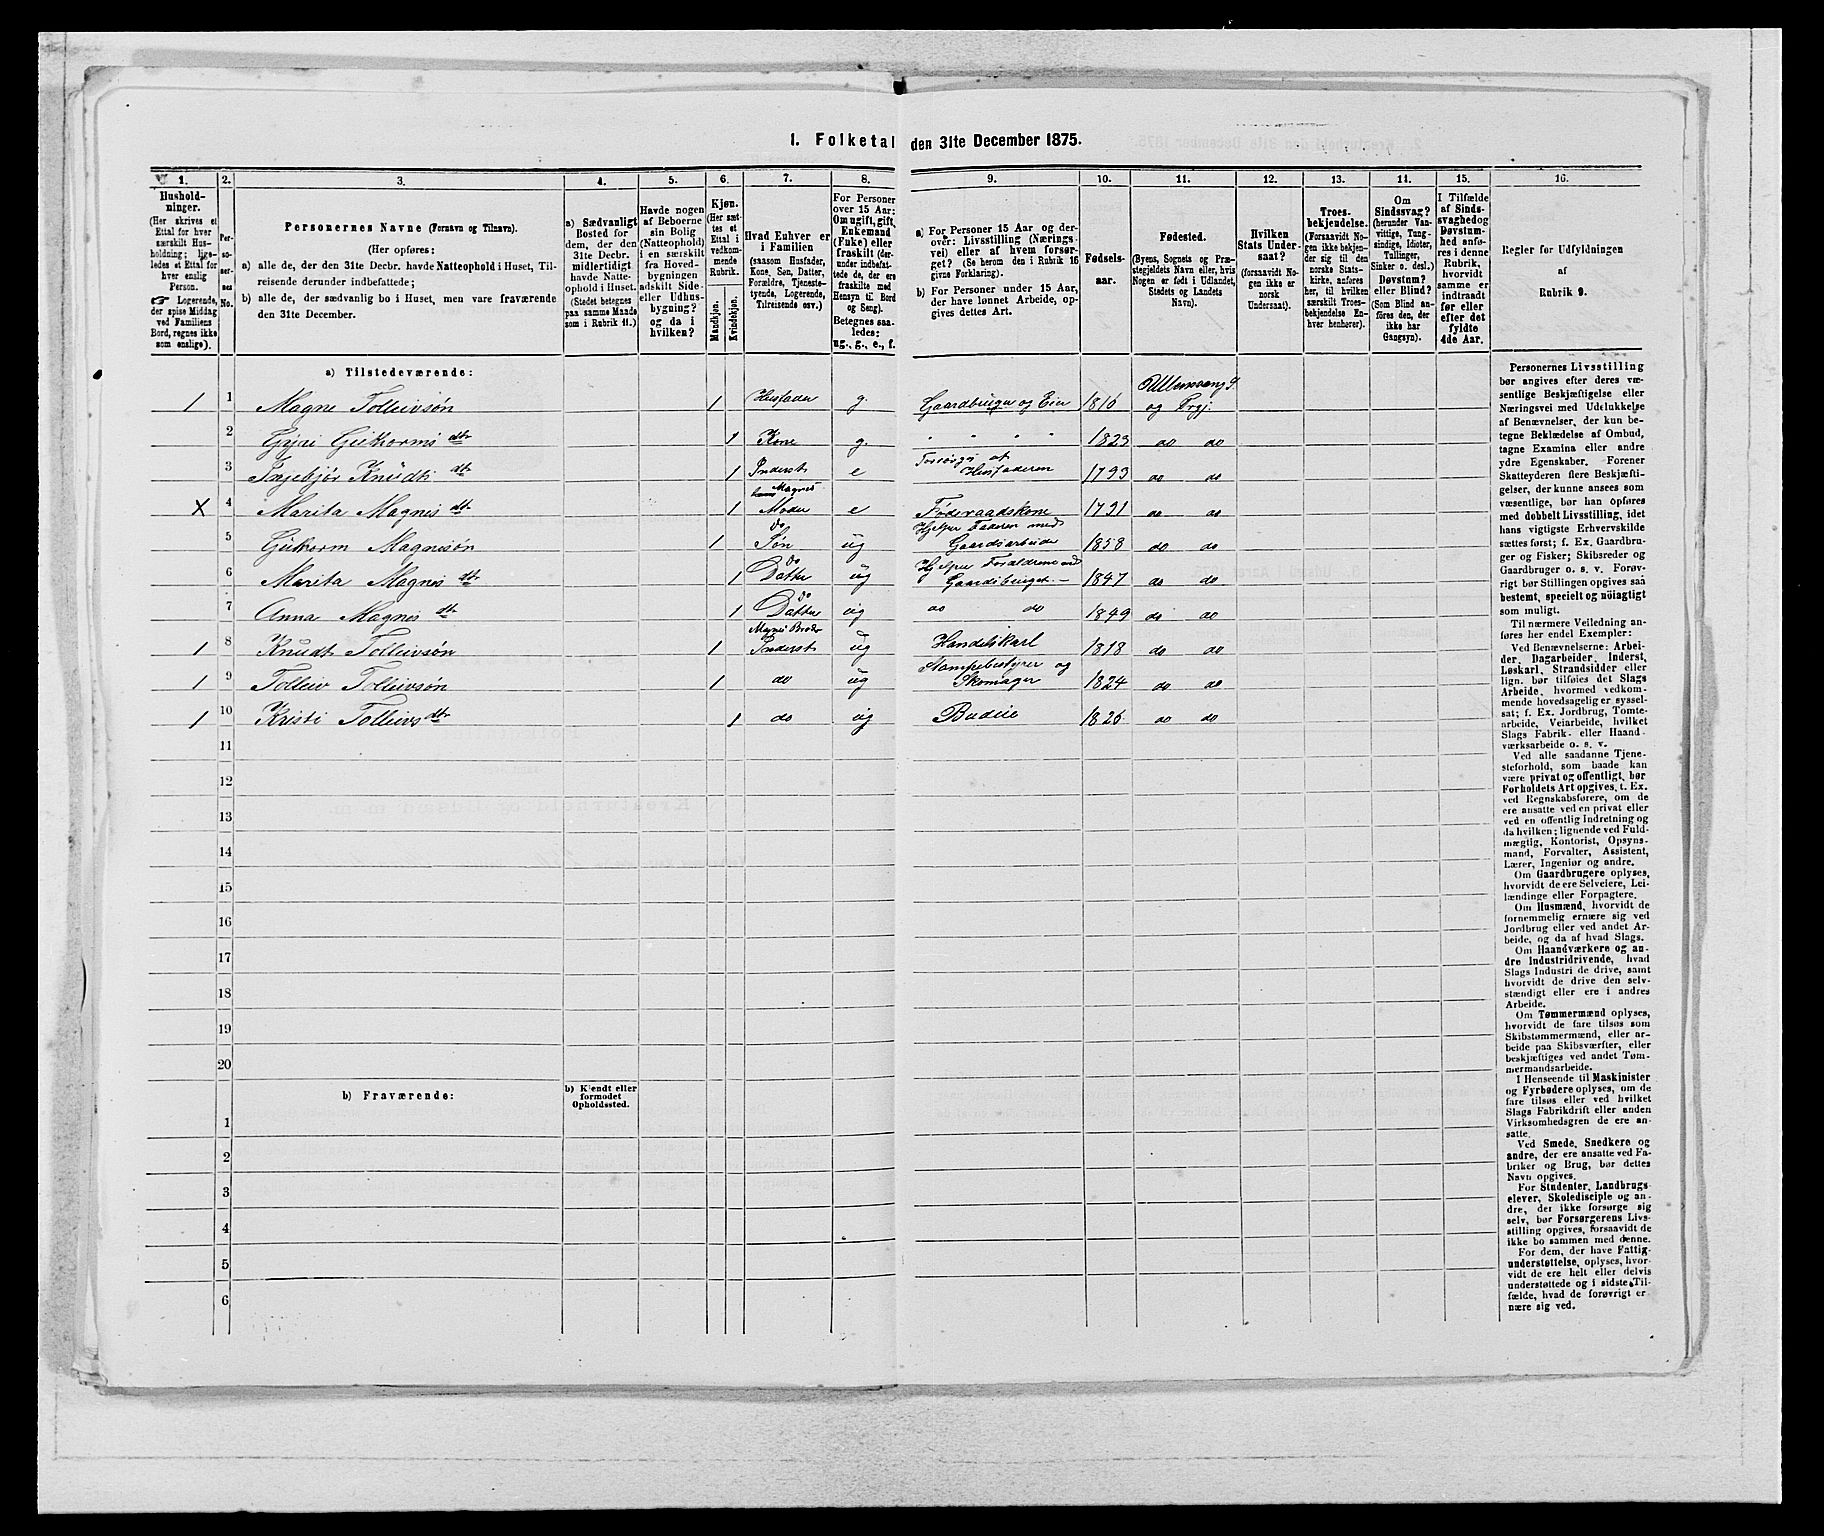 1. Folketal den 31te December 1875.
1. 2. 3. 4. 5. 6. 7. 8. 9. 10. 11. 12. 13. 14. 15. 16.
Hushold-
ninger.
(Her skrives et
Ettal for hver
særskilt Hus-
holdning; lige-
ledes et Ettal for
hver enslig
Person.
☞ Logerende,
der spise Middag
ved Familiens
Bord, regnes ikke
som enslige).
Per-
so-
ner-
nes
No.
Personernes Navne (Fornavn og Tilnavn).
(Her opføres:
a) alle de, der den 31te Decbr. havde Natteophold i Huset, Til-
reisende derunder indbefattede;
b) alle de, der sædvanlig bo i Huset, men vare fraværende
den 31te December.
a) Sædvanligt
Bosted for
dem, der den
31te Decbr.
midlertidigt
havde Natte-
ophold i Huset.
(Stedet betegnes
paa samme Maade
som i Rubrik 11.)
Havde nogen
af Beboerne
sin Bolig
(Natteophold)
i en særskilt
fra Hoved-
bygningen
adskilt Side-
eller Udhus-
bygning?
og da i
hvilken?
Kjøn.
(Her sæt-
tes et
Ettal i
vedkom-
mende
Rubrik.
Mandkjøn.
Kvindekjøn.
Hvad Enhver er
i Familien
(saasom Husfader,
Kone, Søn, Datter,
Forældre, Tjeneste-
tyende, Logerende,
Tilreisende osv.)
For Personer
over 15 Aar:
Om ugift, gift,
Enkemand
(Enke) eller
fraskilt (der-
under indbefat-
tede de, der ere
fraskilte med
Hensyn til Bord
og Seng).
Betegnes saa-
ledes:
ug., g., e., f.
a) For Personer 15 Aar og der-
over: Livsstilling (Nærings-
vei) eller af hvem forsør-
get? (Se herom den i Rubrik 16
givne Forklaring).
b) For Personer under 15 Aar,
der have lønnet Arbeide, op-
gives dettes Art.
Fødsels-
aar.
Fødested.
(Byens, Sognets og Præ-
stegjeldets Navn eller, hvis
Nogen er født i Udlandet,
Stedets og Landets
Navn).
Hvilken
Stats Under-
saat?
(forsaavidt No-
gen ikke er
norsk
Undersaat).
Troes-
bekjendelse.
(Forsaavidt No-
gen ikke bekjen-
der sig til den
norske Stats-
kirke, anføres
her, til hvilken
særskilt Troes-
bekjendelse En-
hver henhører).
Om
Sindssvag?
(herunder Van-
vittige, Tung-
sindige, Idioter,
Tullinger,
Sinker o. desl.)
Døvstum?
eller Blind?
(Som Blind an-
føres den, der
ikke har
Gangsyn).
I Tilfælde
af Sinds-
svaghed og
Døvstum-
hed anfø-
res i denne
Rubrik,
hvorvidt
samme er
indtraadt
før eller
efter det
fyldte
4de Aar.
Regler for Udfyldningen
af
Rubrik 9.
a) Tilstedeværende:
1 1 Magne Tolleivsøn 1 Husfader g. Gaardbruger og Eier 1816 Ullensvang S. og Prgj.
2 Gyri Guthorms dtr 1 Kone g. " " " " 1823 do do
3 Ingebjør Knudts dtr 1 Inderst e Forsørges af Husfaderen 1793 do do
X 4 Marita Magnes dtr 1 Magnes Moder e Føderaadskone 1791 do do
5 Guthorm Magnesøn 1 do Søn ug Hjelper Faderen med Gaardsarbeide 1858 do do
6 Marita Magnes dtr 1 do Datter ug Hjelper Forældrene ved Gaardsbruget 1847 do do
7 Anna Magnes dtr 1 do Datter ug do do 1849 do do
1 8 Knudt Tolleivsøn 1 Magnes Broder Inderst ug Handelskarl 1818 do do
1 9 Tolleiv Tolleivsøn 1 do ug Stampebestyrer og Skomager 1824 do do
1 10 Kristi Tolleivs dtr 1 do ug Budeie 1826 do do
11
12
13
14
15
16
17
18
19
20
b) Fraværende:
b) Kjendt eller
formodet
Opholdssted.
1
2
3
4
5
6
Personernes Livsstilling
bør angives efter deres væ-
sentlige Beskjæftigelse eller
Næringsvei med Udelukkelse
af Benævnelser, der kun be-
tegne Beklædelse af Ombud,
tagne Examina eller andre
ydre Egenskaber. Forener
Skatteyderen flere Beskjæfti-
gelser, der kunne ansees som
væsentlige, bør han opføres
med dobbelt Livsstilling, idet
hans vigtigste Erhvervskilde
sættes først; f. Ex. Gaardbru-
ger og Fisker; Skibsreder og
Gaardbruger o. s. v. Forøv-
rigt bør Stillingen opgives saa
bestemt, specielt og nöiagtigt
som muligt.
Til nærmere Veiledning an-
føres her endel Exempler:
Ved Benævnelserne: Arbei-
der, Dagarbeider, Inderst,
Løskarl, Strandsidder eller
lign. bør tilføies det Slags
Arbeide, hvormed vedkom-
mende hovedsagelig er syssel-
sat; f. Ex. Jordbrug, Tomte-
arbeide, Veiarbeide, hvilket
Slags Fabrik- eller Haand-
værksarbeide o. s. v.
Ved alle saadanne Tjene-
steforhold, som baade kan
være privat og offentligt, bør
Forholdets Art opgives, t. Ex.
ved Regnskabsførere, om de
ere ansatte ved en privat eller
ved en offentlig Indretning og
da hvilken; lignende ved Fuld-
mægtig, Kontorist, Opsyns-
mand, Forvalter, Assistent,
Lærer, Ingeniør og andre.
Om Gaardbrugere oplyses,
hvorvidt de ere Selveiere, Lei-
lændinge eller Forpagtere.
Om Husmænd, hvorvidt de
fornemmelig ernære sig ved
Jordbrug eller ved andet Ar-
beide, og da af hvad Slags.
Om Haandværkere og an-
dre Industridrivende, hvad
Slags Industri de drive, samt
hvorvidt de drive den selv-
stændigt eller ere i andres
Arbeide.
Om Tømmermænd oplyses,
hvorvidt de fare tilsøs som
Skibstømmermænd, eller ar-
beide paa Skibsværfter, eller
beskjæftiges ved andet Tøm-
mermandsarbeide.
I Henseende til Maskinister
og Fyrbødere oplyses, om de
fare tilsøs eller ved hvilket
Slags Fabrikdrift eller anden
Virksomhedsgren de ere an-
satte.
Ved Smede, Snedkere og
andre, der ere ansatte ved Fa-
briker og Brug, bør dettes
Navn opgives.
For Studenter, Landbrugs-
elever, Skoledisciple og an-
dre, der ikke forsørge sig
selv, bør Forsørgerens Livs-
stilling opgives, forsaavidt de
ikke bo sammen med denne.
For dem, der have Fattig-
understøttelse, oplyses, hvor-
vidt de ere helt eller delvis
understøttede og i sidste Til-
fælde, hvad de forøvrigt er-
nære sig ved.